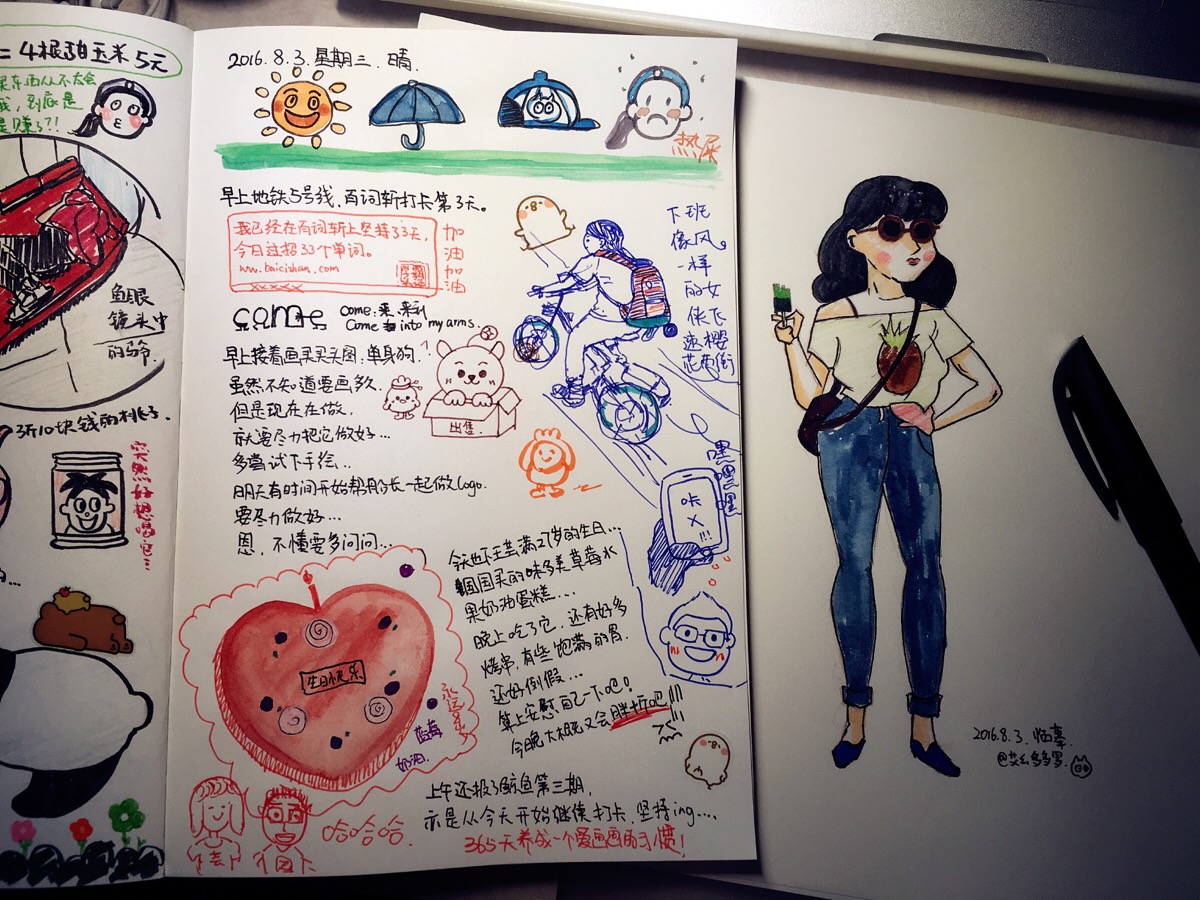 = 4根甜玉米 5元
买东西从不太会
到底是
是赚了?!
鱼眼
镜头中
的爷
3斤10块钱的桃子.
突然好想喝它…
2016.8.3.星期三.晴.
热尿
早上地铁5号线,百词斩打卡第3天。
我已经在百词斩上坚持33天,
今日过招33个单词。
ww.baicizhan.com
xxxxx
加油加油
come
come:来.来到
Come into my arms.
早上接着画买买买图,单身狗.
虽然不知道要画多久.
但是现在在做,
就要尽力把它做好…
多尝试下手绘..
明天有时间开始帮船长一起做logo.
要尽力做好…
恩,不懂要多问问…
出售.
下班
像风
一样
的女
侠飞
速樱
花东街
嘿嘿嘿
咔
×
!!!
今天也下王芸满27岁的生日…
国国买的味多美草莓水
果奶油蛋糕…
晚上吃了它,还有好多
烤串,有些饱满的胃.
还好例假…
算上安慰自己一下吧!
今晚大概又会胖折吧!!!
生日快乐
蓝莓
奶油.
芸
国
哈哈哈.
上午还报了鲸鱼第三期,
亦是从今天开始继续打卡,坚持ing….
365天养成一个爱画画的习惯!
2016.8.3.临摹.
@艾幺多多罗.